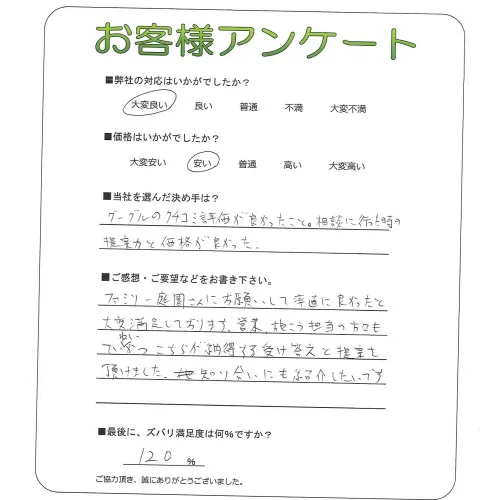 お客様アンケート
■弊社の対応はいかがでしたか？
大変良い 良い 普通 不満 大変不満
■価格はいかがでしたか？
大変安い 安い 普通 高い 大変高い
■当社を選んだ決め手は？
グーグルの口コミ評価が良かったこと。相談に行った時の
提案力と価格が良かった。
■ご感想・ご要望などをお書き下さい。
ファミリー庭園さんにお願いして率直に良かったと
大変満足しております。営業、施こう担当の方々も
こちらが納得する受け答えと提案を
頂けました。知り合いにも紹介したいです
■最後に、ズバリ満足度は何％ですか？
120 %
ご協力頂き、誠にありがとうございました。